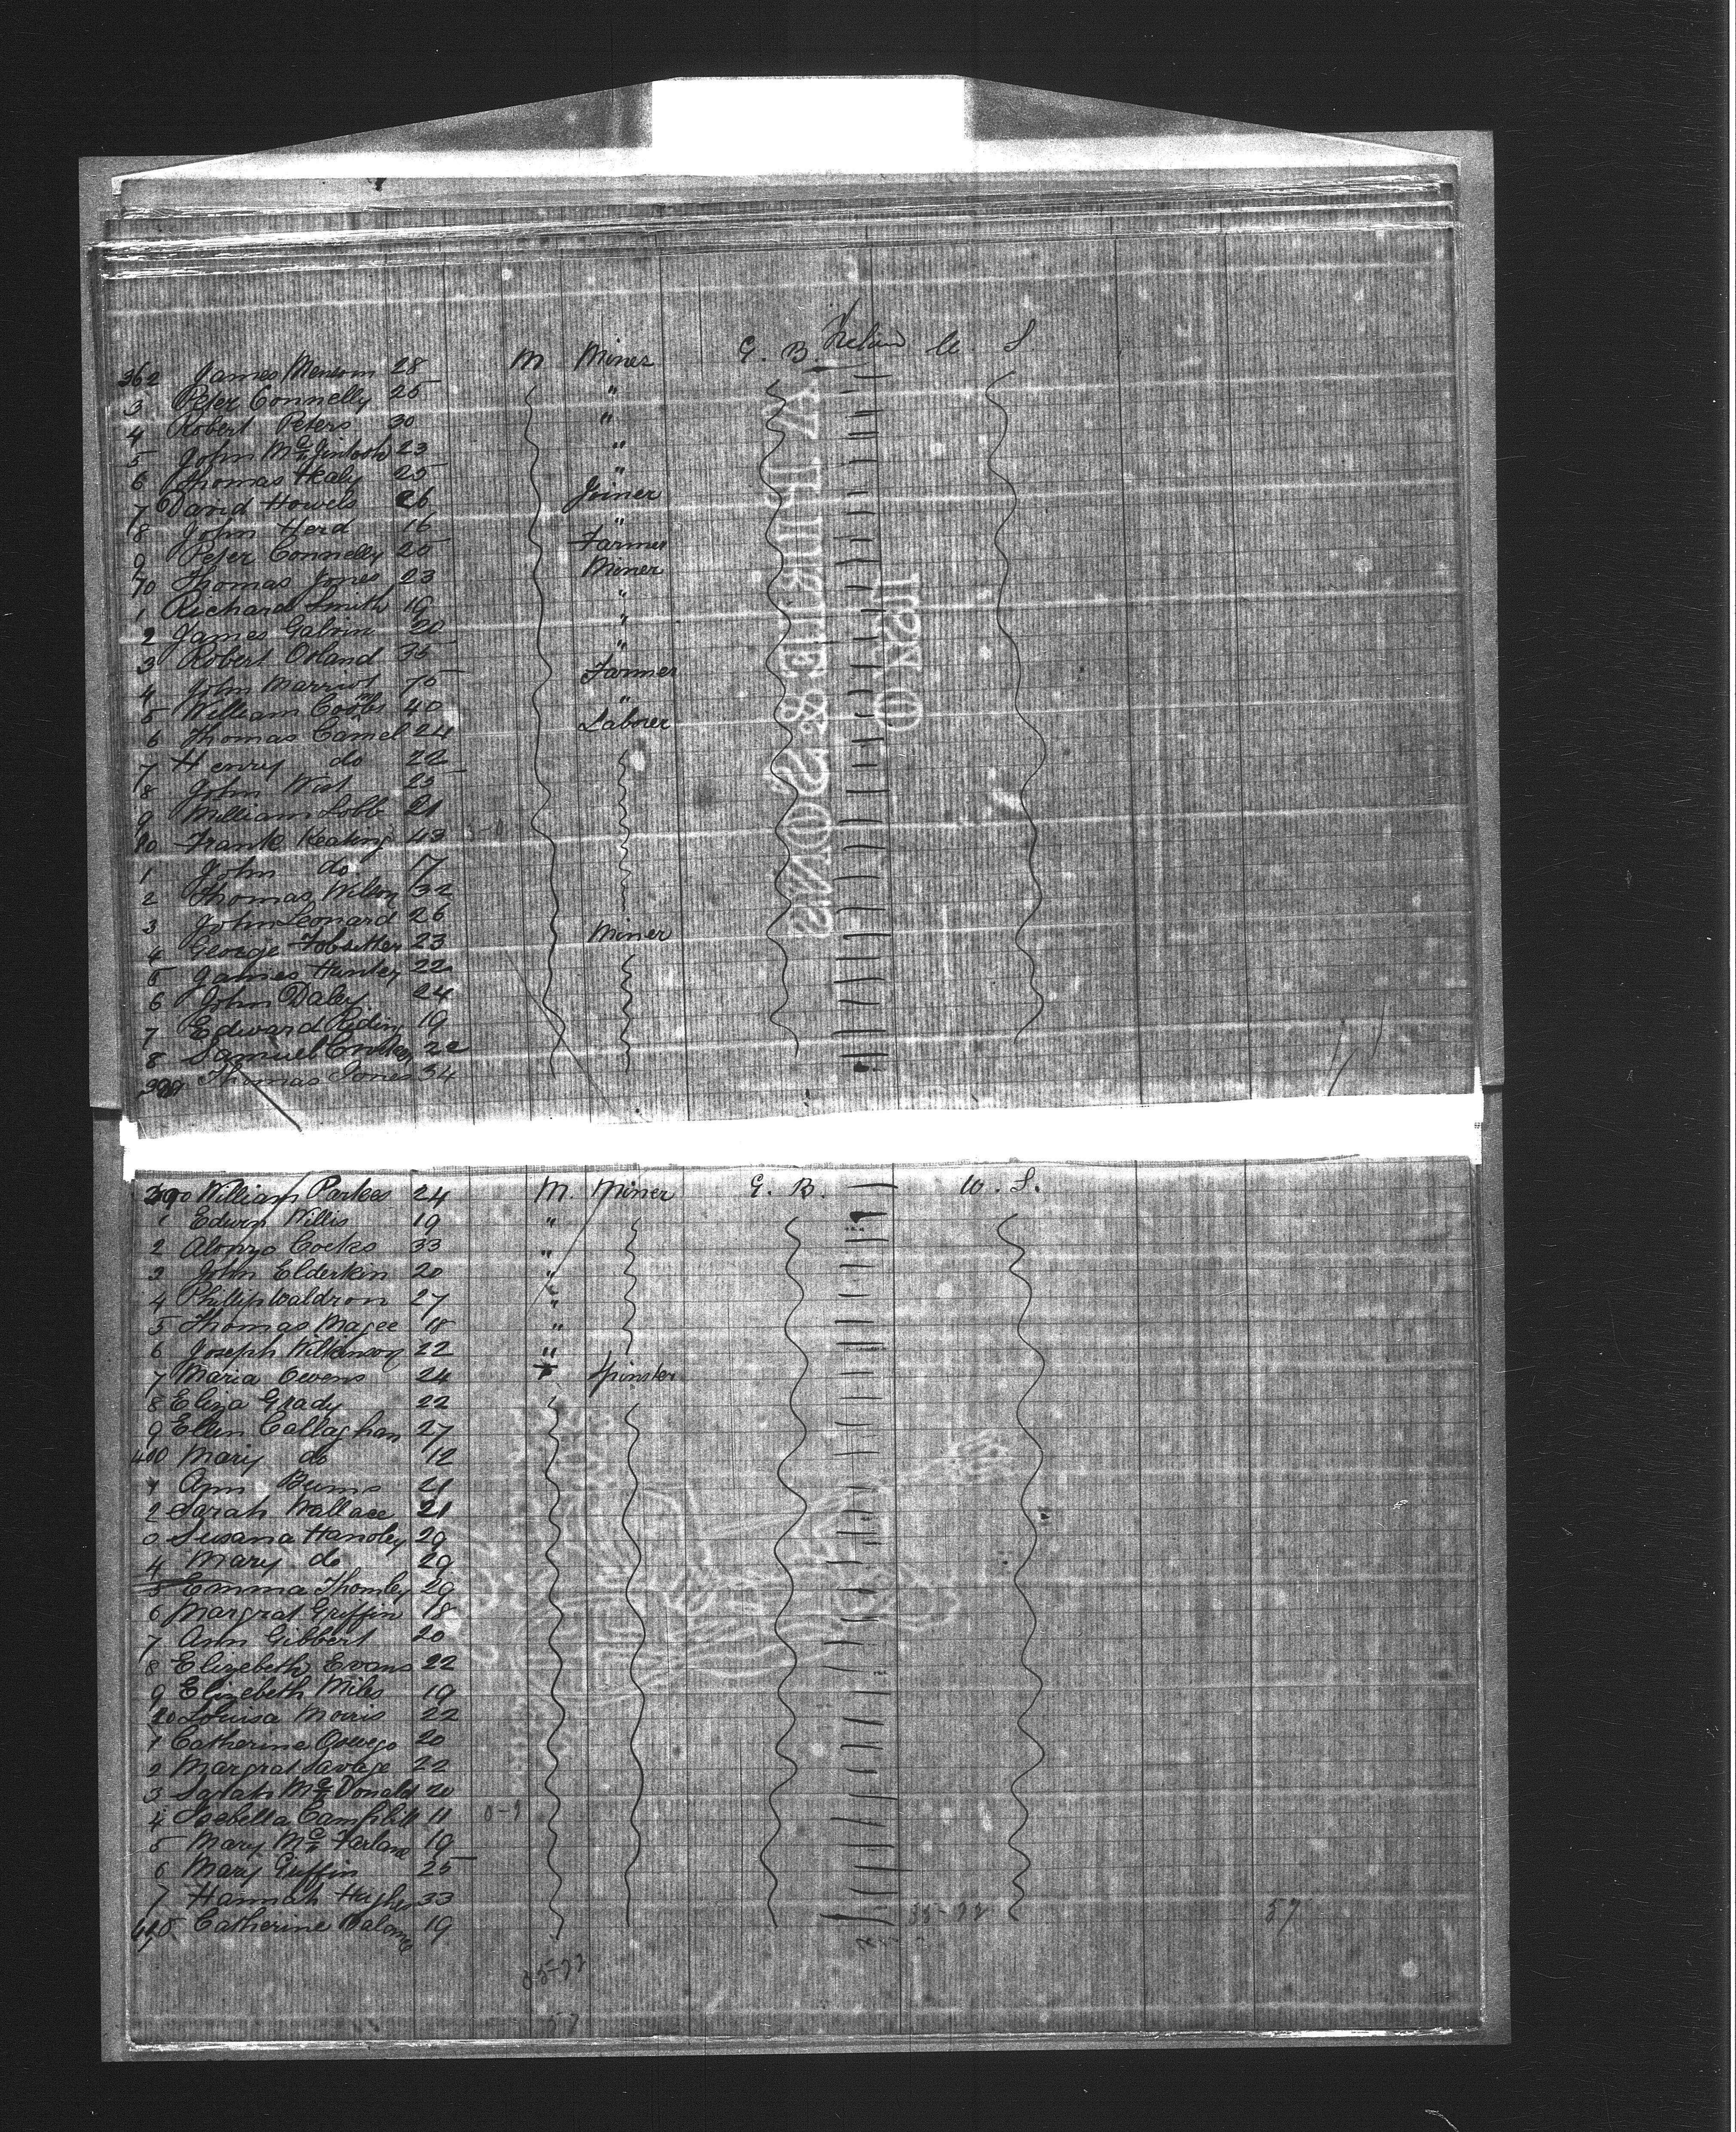 362 James 28 M Miner G. B. Ireland U. S
3 Peter Connelly 25 "
4 Robert Peters 30 "
5 John McGintosh 23 "
6 Thomas Healy 25 "
7 David Howels 26 Joiner
8 John Herd 16 "
9 Peter Connelly 25 Farmer
70 Thomas Jones 23 Miner
1 Richard Smith 19 "
2 James Galvin 20 "
3 Robert Orland 35 "
4 John Marriot 75 Farmer
5 William Coombs 40 "
6 Thomas Camel 24 Laborer
7 Henry do 22
8 John 25
9 William Lobb 21
80 Frank Keating 43
1 John do 17
2 Thomas Wilson 32
3 John Leonard 26
4 George 23 Miner
5 James Hunter 22
6 John Daley 24
7 Edward Riding 19
8 Samuel 22
389 Thomas Jones 34
390 William Parkes 24 M. Miner G. B. U. S.
1 Edwin Willis 19 "
2 Alonzo Cocks 33 "
3 John Elderkin 20 "
4 Phillip Waldron 27 "
5 Thomas Magee 18 "
6 Joseph Wilkinson 22 "
7 Maria Owens 24 F Spinster
8 Eliza Grady 22
9 Ellen Callaghan 27
400 Mary do 12
1 Ann Burns 21
2 Sarah Wallace 21
3 Susana Handley 29
4 Mary do 29
5 Emma Thomley 29
6 Margrat Griffin 18
7 Ann Gibbert 20
8 Elizebeth Evans 22
9 Elizebeth Miles 19
20 Louisa Morris 22
1 Catherine Oswego 20
2 Margrat Savage 22
3 Sarah McDonald 20
4 Isebella Campbill 11
5 Mary McFerlane 19
6 Mary Griffin 25
7 Hannah Hughes 33
Catherine 19
35-22 57
57